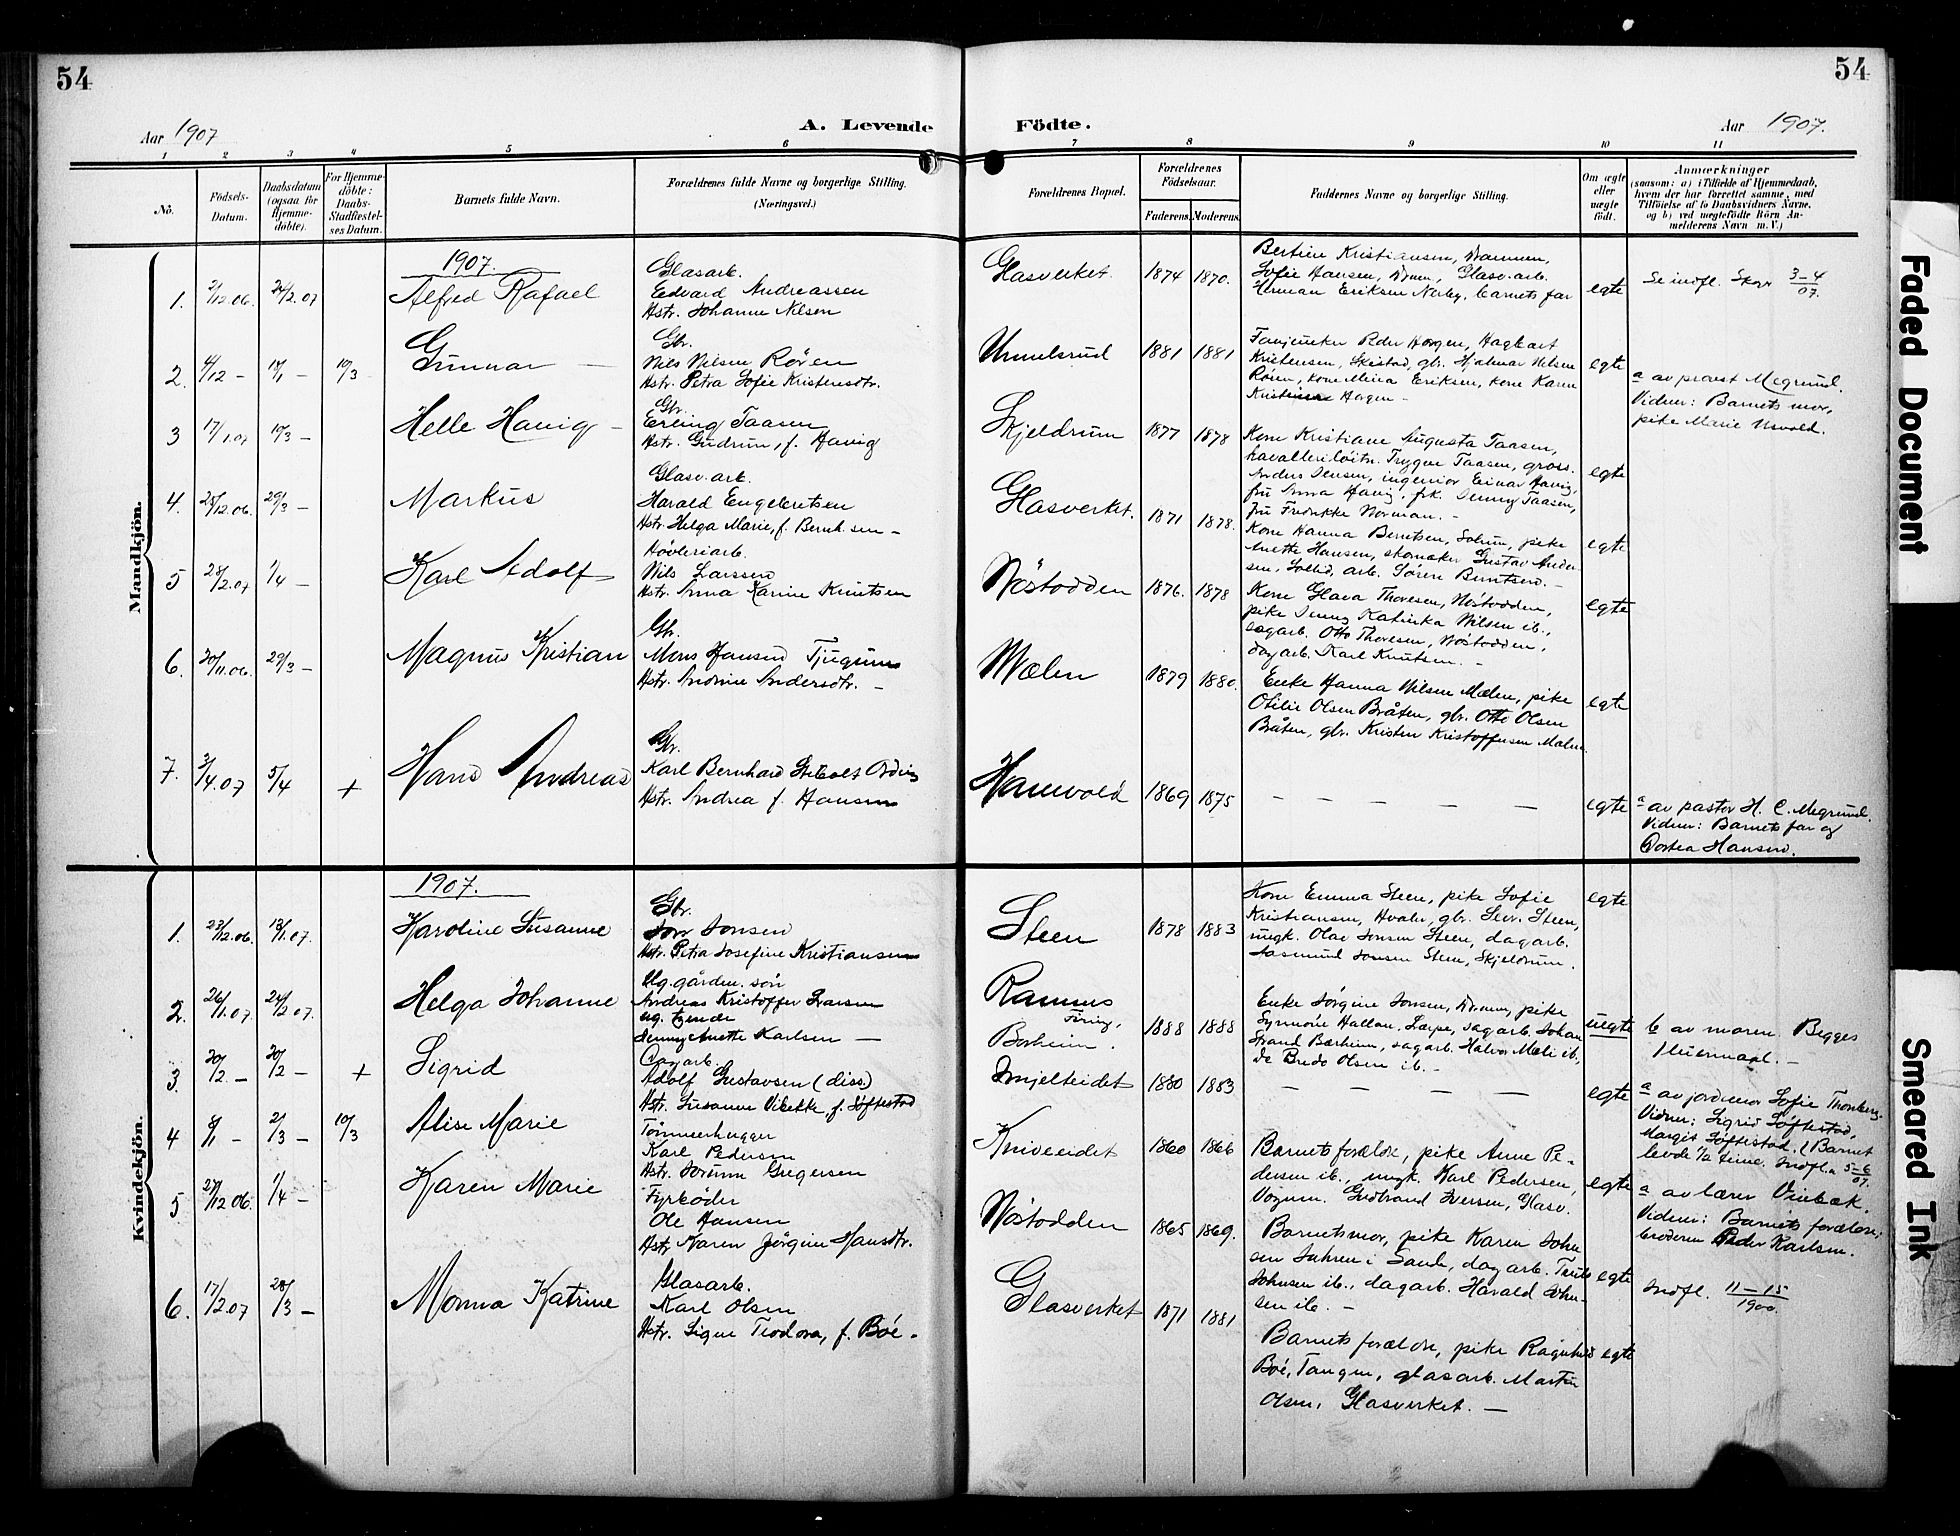 54
54
Aar 1907
A. Levende Födte.
Aar 1907.
1 2 3 4 5 6 7 8 9 10 11
No.
Födsels-
Datum.
Daabsdatum
(ogsaa for
Hjemme-
döbte).
For Hjemme-
döbte:
Daabs-
Stadfæstel-
ses Datum.
Barnets fulde Navn.
Forældrenes fulde Navne og borgerlige Stilling.
(Næringsvei.)
Forældrenes Bopæl.
Forældrenes
Födselsaar.
Faderens.
Moderens.
Faddernes Navne og borgerlige Stilling.
Om ægte
eller
uægte
födt.
Anmærkninger
(saasom: a) i Tilfælde af Hjemmedaab,
hvem der har forrettet samme, med
Tilföielse af to Daabsvidners Navne,
og b) ved uegtefödte Börn An-
melderens Navn m. V.)
Mandkjön.
1907.
1. 2/12.06. 24/2.07
Alfred Rafael
Glasarb.
Edvard Andreassen
Hstr. Johanne Nilsen
Glasverket. 1874 1870.
Bertine Kristiansen, Drammen,
Sofie Hansen, Dram, Glasv.arb.
Herman Eriksen Nerby, barnets far
egte
Se indfl. 3-4/07.
2. 4/12 - 18/1 - 10/3
Gunnar —
Gbr.
Nils Nilsen Rören
Hstr. Petra Sofie Kristensdtr.
Unnelsrud 1881 1881
Peder Horgen, Hagbart
Kristensen, Skistad, gbr. Hjalmar Nilsen
Rören, kone Mina Eriksen, kone Karen
Kristine Hagen -
egte
a av prost Megrund.
Vidner: Barnets mor,
pike Marie Usvold.
3 17/1.07 10/3 -
Helle Havig -
Gbr.
Erling Taasen
Hstr. Gudrun, f. Havig
Skjeldrum 1877 1878
Kone Kristiane Augusta Taasen,
kavalleriløitn. Trygve Taasen, gross.
Anders Jensen, ingeniør Einar Havig,
fru Anna Havig, frk. Jenny Taasen,
fru Fredrikke Norman. -
egte
4. 28/12.06. 29/3 -
Markus
Glasv.arb.
Harald Engebretsen
Hstr. Helga Marie, f. Bernh.sen -
Glasverket. 1871 1878.
Kone Hanna Berntsen, Solum, pike
Anette Hansen, skomaker Gustav Ander-
sen, Sollid, arb. Sören Berntsen. -
egte
5 28/2.07 1/4 -
Karl Adolf
Høvleriarb.
Nils Larssen
Hstr. Anna Karine Knutsen
Nöstodden 1876. 1878
Kone Glava Thoresen, Nöstodden,
pike Jenny Katinka Nilsen ib.,
sagarb. Otto Thoresen, Nöstodden,
dagarb. Karl Knutsen. -
egte
6. 30/11.06. 29/3 -
Magnus Kristian
Gbr.
Mons Hansen Tjugum
Hstr. Andrine Andersdtr. -
Mælen 1879 1880.
Enke Hanna Nilsen Mælen, pike
Otilie Olsen Bråten, gbr. Otto Olsen
Bråten, gbr. Kristen Kristoffersen Malm.
egte
7. 3/4.07 5/4 +
Hans Andreas
Gbr.
Karl Bernhard
Hstr. Andrea f. Hansen
Hanevold 1869 1875
- - - - -
egte
a av pastor H. C. Megrund.
Vidner: Barnets far og
Dortea Hansen.
Kvindekjön.
1907.
1. 23/12.06. 13/1.07.
Karoline Susanne
Gbr.
Jonsen
Hstr. Petra Josefine Kristiansen
Steen 1878 1883
Kone Emma Steen, pike Sofie
Kristiansen, Hvaler, gbr. Sev. Steen,
ungk. Olav Jonsen Steen, dagarb.
Jonsen Steen, Skjeldrum.
egte
2. 26/1.07. 24/2 07.
Helga Johanne
Ug. gården. søn
Andreas Kristoffer Larsen
ug. tjende
Jenny Anette Karlsen —
Ramnes
Borheim. 1888 1888
Enke Jörgine Jonsen, Dramm, pike
Hallan, sagarb. Johan
Strand Berheim, sagarb. Halvor Mæli ib.,
do Bredo Olsen ib. -
uegte
b av moren. Begges
1ste leiermaal. -
3. 20/2 - 20/2 - +
Sigrid
Dagarb.
Adolf Gustavsen (diss)
Hstr. Susanne Vibekke, f. Löftestad
1880 1883
- - -
egte
a av jordmor Sofie Thonberg.
Vidner: Sigrid Löftestad,
Margit Löftestad. (Barnet
levde 1/2 time. Indfl. 5-6/07.
4 8/1 - 2/3 - 10/3
Alise Marie
Tømmerhugger
Karl Pedersen
Hstr. Gregersen
Kniveeidet 1860 1866
Barnets forældre, pike Anne Pe-
dersen ib., ungk. Karl Pedersen,
Gudbrand Iversen, Glasv.
egte
a av lærer Vinbæk.
Vidner: Barnets forældre,
broderen Peder Karlsen.
5 27/12 06. 1/4 -
Karen Marie
Fyrbøder
Ole Hansen
Hstr. Maren Jörgine Hansdtr.
Nöstodden 1865 1869.
Barnets mor, pike Karen John-
sen i Sande, dagarb.
Johnsen ib., dagarb. Harald John-
sen ib. -
egte
Indfl. 11-15/1900.
6. 17/2.07 28/3 -
Monna Katrine
Glasarb.
Karl Olsen
Hstr. Signe Teodora, f. Böe.
Glasverket 1871 1881
Barnets forældre, pike Ragnhild
Böe, Tangen, glasarb. Martin
Olsen, Glasverket. —
egte
Faded Document
Smeared Ink